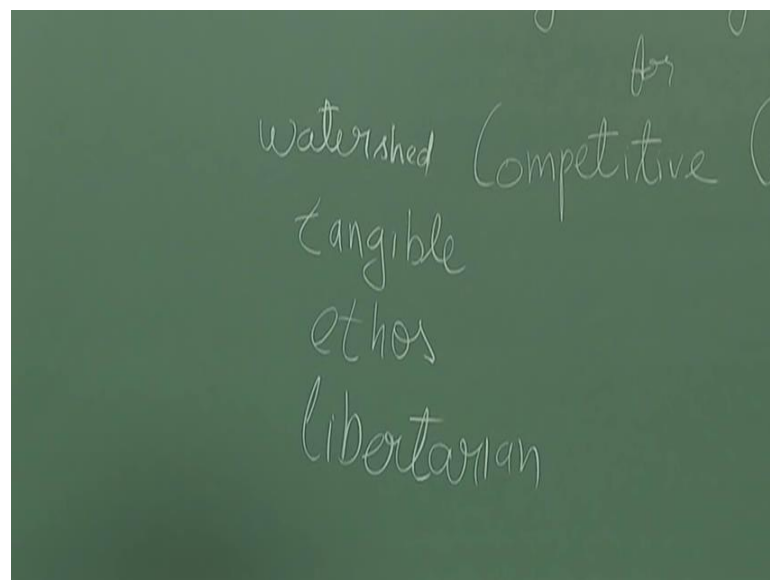 for
watershed Competitive
tangible
ethos
libertarian